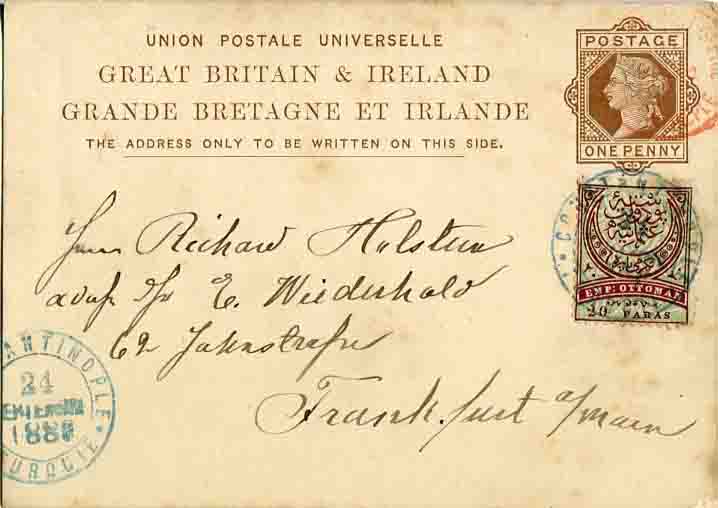 UNION POSTALE UNIVERSELLE
GREAT BRITAIN & IRELAND
GRANDE BRETAGNE ET IRLANDE
THE ADDRESS ONLY TO BE WRITTEN ON THIS SIDE.
POSTAGE
ONE PENNY
EMP: OTTOMAN
20 PARAS
Herrn Richard Holstein
E. Wiederhold
62 Jahnstraße
Frankfurt a/Main
ANTINOPLE
24
188
TURQUIE